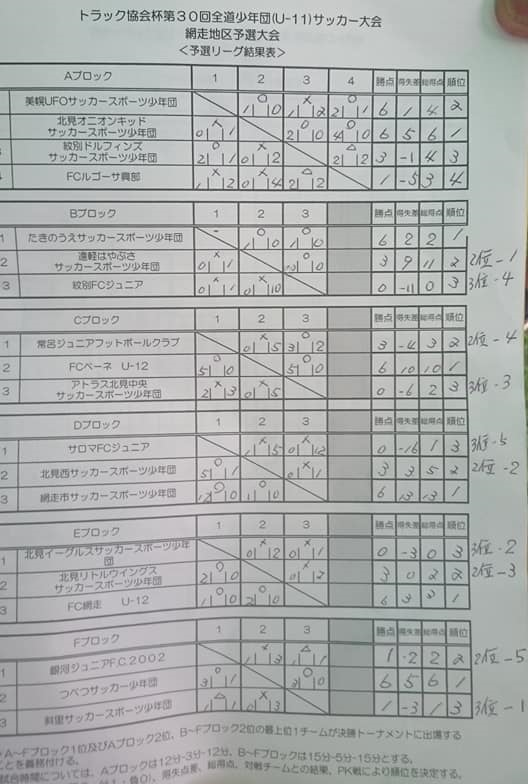 トラック協会杯第30回全道少年団(U-11)サッカー大会
網走地区予選大会
<予選リーグ結果表>
Aブロック 1 2 3 4 勝点 得失差 総得点 順位
美幌UFOサッカースポーツ少年団 ○ 1 0 × 1 2 ○ 2 1 6 1 4 2
北見オニオンキッド
サッカースポーツ少年団 × 0 1 ○ 2 0 ○ 4 0 6 5 6 1
紋別ドルフィンズ
サッカースポーツ少年団 ○ 2 1 × 0 2 △ 2 2 3 -1 4 3
FCルゴーサ興部 × 1 2 × 0 4 △ 2 2 1 -5 3 4
Bブロック 1 2 3 勝点 得失差 総得点 順位
1 たきのうえサッカースポーツ少年団 ○ 1 0 ○ 1 0 6 2 2 1
2 遠軽はやぶさ
サッカースポーツ少年団 × 0 1 ○ 0 3 9 11 2 2位-1
3 紋別FCジュニア × 0 1 × 0 10 0 -11 0 3 3位-4
Cブロック 1 2 3 勝点 得失差 総得点 順位
1 常呂ジュニアフットボールクラブ × 0 5 ○ 3 2 3 -4 3 2 2位-4
2 FCベーネ U-12 ○ 5 0 ○ 5 0 6 10 10 1
3 アトラス北見中央
サッカースポーツ少年団 × 2 3 × 0 5 0 -6 2 3 3位-3
Dブロック 1 2 3 勝点 得失差 総得点 順位
1 サロマFCジュニア × 1 5 × 0 12 0 -16 1 3 3位-5
2 北見西サッカースポーツ少年団 ○ 5 1 × 0 1 3 3 5 2 2位-2
3 網走市サッカースポーツ少年団 ○ 12 0 ○ 1 0 6 13 13 1
Eブロック 1 2 3 勝点 得失差 総得点 順位
1 北見イーグルスサッカースポーツ少年
団 × 0 2 × 0 1 0 -3 0 3 3位-2
2 北見リトルウイングス
サッカースポーツ少年団 ○ 2 0 × 0 2 3 0 2 2 2位-3
3 FC網走 U-12 ○ 1 0 ○ 2 0 6 3 3 1
Fブロック 1 2 3 勝点 得失差 総得点 順位
1 銀河ジュニアF.C.2002 × 1 3 △ 1 1 1 -2 2 2 2位-5
2 つべつサッカー少年団 ○ 3 1 ○ 3 0 6 5 6 1
3 斜里サッカースポーツ少年団 △ 1 1 × 0 3 1 -3 1 3 3位-1
・A~Fブロック1位及びAブロック2位、B~Fブロック2位の最上位1チームが決勝トーナメントに出場する
ことを義務付ける。
試合時間については、Aブロックは12分-3分-12分、B~Fブロックは15分-5分-15分とする。
得失点差、総得点、対戦チームとの結果、PK戦により順位を決定する。